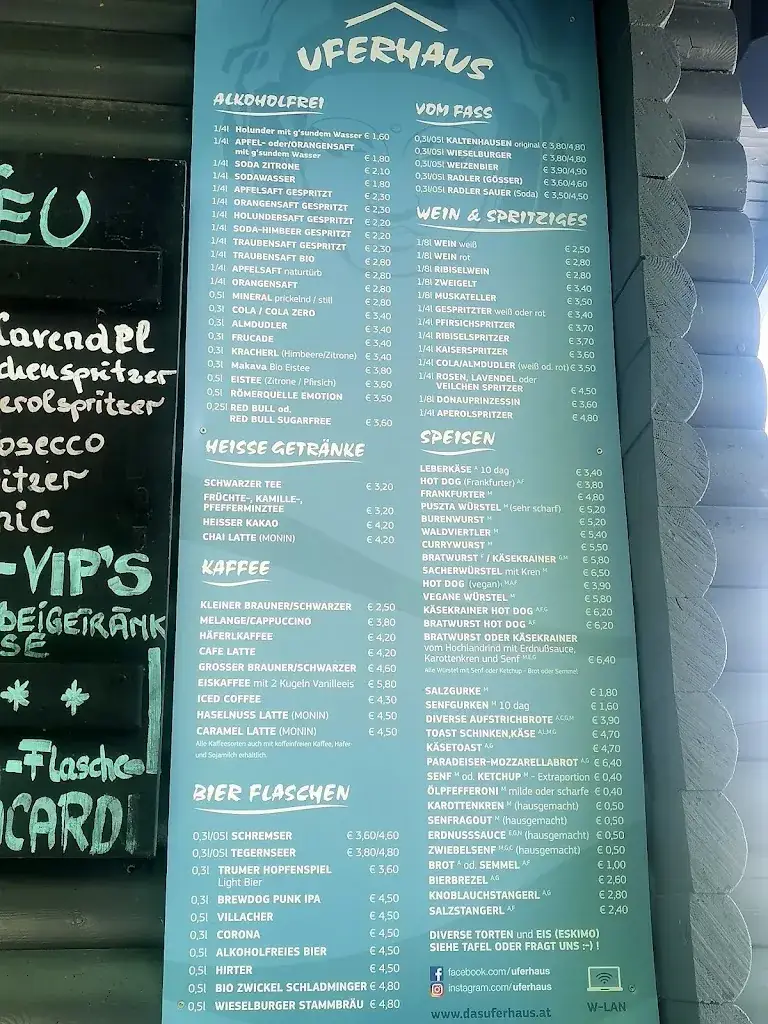 UFERHAUS
ALKOHOLFREI
1/4l Holunder mit g'sundem Wasser € 1,60
1/4l APFEL- oder/ORANGENSAFT
mit g'sundem Wasser € 1,80
1/4l SODA ZITRONE € 2,10
1/4l SODAWASSER € 1,80
1/4l APFELSAFT GESPRITZT € 2,30
1/4l ORANGENSAFT GESPRITZT € 2,30
1/4l HOLUNDERSAFT GESPRITZT € 2,20
1/4l SODA-HIMBEER GESPRITZT € 2,20
1/4l TRAUBENSAFT GESPRITZT € 2,30
1/4l TRAUBENSAFT BIO € 2,80
1/4l APFELSAFT naturtüb € 2,80
1/4l ORANGENSAFT € 2,80
0,5l MINERAL prickelnd / still € 2,80
0,3l COLA / COLA ZERO € 3,40
0,3l ALMDUDLER € 3,40
0,3l FRUCADE € 3,40
0,3l KRACHERL (Himbeere/Zitrone) € 3,40
0,3l Makava Bio Eistee € 3,80
0,5l EISTEE (Zitrone / Pfirsich) € 3,60
0,5l RÖMERQUELLE EMOTION € 3,50
0,25l RED BULL od.
RED BULL SUGARFREE € 3,60
HEISSE GETRÄNKE
SCHWARZER TEE € 3,20
FRÜCHTE-, KAMILLE-,
PFEFFERMINZTEE € 3,20
HEISSER KAKAO € 4,20
CHAI LATTE (MONIN) € 4,20
KAFFEE
KLEINER BRAUNER/SCHWARZER € 2,50
MELANGE/CAPPUCCINO € 3,80
HÄFERLKAFFEE € 4,20
CAFE LATTE € 4,20
GROSSER BRAUNER/SCHWARZER € 4,60
EISKAFFEE mit 2 Kugeln Vanilleeis € 5,80
ICED COFFEE € 4,30
HASELNUSS LATTE (MONIN) € 4,50
CARAMEL LATTE (MONIN) € 4,50
Alle Kaffeesorten auch mit koffeinfreien Kaffee, Hafer-
und Sojamilch erhältlich.
BIER FLASCHEN
0,3l/05l SCHREMSER € 3,60/4,60
0,3l/05l TEGERNSEER € 3,80/4,80
0,3l TRUMER HOPFENSPIEL € 3,60
Light Bier
0,3l BREWDOG PUNK IPA € 4,50
0,5l VILLACHER € 4,50
0,3l CORONA € 4,50
0,5l ALKOHOLFREIES BIER € 4,50
0,5l HIRTER € 4,50
0,5l BIO ZWICKEL SCHLADMINGER € 4,80
0,5l WIESELBURGER STAMMBRÄU € 4,80
VOM FASS
0,3l/05l KALTENHAUSEN original € 3,80/4,80
0,3l/05l WIESELBURGER € 3,80/4,80
0,3l/05l WEIZENBIER € 3,90/4,90
0,3l/05l RADLER (GÖSSER) € 3,60/4,60
0,3l/05l RADLER SAUER (Soda) € 3,50/4,50
WEIN & SPRITZIGES
1/8l WEIN weiß € 2,50
1/8l WEIN rot € 2,80
1/8l RIBISELWEIN € 2,80
1/8l ZWEIGELT € 3,40
1/8l MUSKATELLER € 3,50
1/4l GESPRITZTER weiß oder rot € 3,40
1/4l PFIRSICHSPRITZER € 3,70
1/4l RIBISELSPRITZER € 3,70
1/4l KAISERSPRITZER € 3,60
1/4l COLA/ALMDUDLER (weiß od. rot) € 3,50
1/4l ROSEN, LAVENDEL oder
VEILCHEN SPRITZER € 4,50
1/8l DONAUPRINZESSIN € 3,60
1/4l APEROLSPRITZER € 4,80
SPEISEN
LEBERKÄSE A 10 dag € 3,40
HOT DOG (Frankfurter) A,F € 3,80
FRANKFURTER M € 4,80
PUSZTA WÜRSTEL M (sehr scharf) € 5,20
BURENWURST M € 5,20
WALDVIERTLER M € 5,40
CURRYWURST M € 5,50
BRATWURST / KÄSEKRAINER G,M € 5,80
SACHERWÜRSTEL mit Kren M € 6,50
HOT DOG (vegan) M,A,F € 3,90
VEGANE WÜRSTEL M € 5,80
KÄSEKRAINER HOT DOG A,F,G € 6,20
BRATWURST HOT DOG A,F € 6,20
BRATWURST ODER KÄSEKRAINER
vom Hochlandrind mit Erdnußsauce,
Karottenkren und Senf M,E,G € 6,40
alle Würstel mit Senf oder Ketchup - Brot oder Semmel
SALZGURKE M € 1,80
SENFGURKEN M 10 dag € 1,60
DIVERSE AUFSTRICHBROTE A,C,G,M € 3,90
TOAST SCHINKEN,KÄSE A,L,M,G € 4,70
KÄSETOAST A,G € 4,70
PARADEISER-MOZZARELLABROT A,G € 6,40
SENF M od. KETCHUP M - Extraportion € 0,40
ÖLPFEFFERONI M milde oder scharfe € 0,40
KAROTTENKREN M (hausgemacht) € 0,50
SENFRAGOUT M (hausgemacht) € 0,50
ERDNUSSSAUCE E,G,N (hausgemacht) € 0,50
ZWIEBELSENF M,G,C (hausgemacht) € 0,50
BROT A od. SEMMEL A,F € 1,00
BIERBREZEL A,G € 2,60
KNOBLAUCHSTANGERL A,G € 2,80
SALZSTANGERL A,F € 2,40
DIVERSE TORTEN und EIS (ESKIMO)
SIEHE TAFEL ODER FRAGT UNS :-) !
facebook.com/uferhaus
instagram.com/uferhaus
www.dasuferhaus.at
W-LAN
EU
avendel
chenspritzer
erolspritzer
osecco
itzer
nic
-VIP'S
BEIGETRÄNK
SE
-Flasche
CARDI